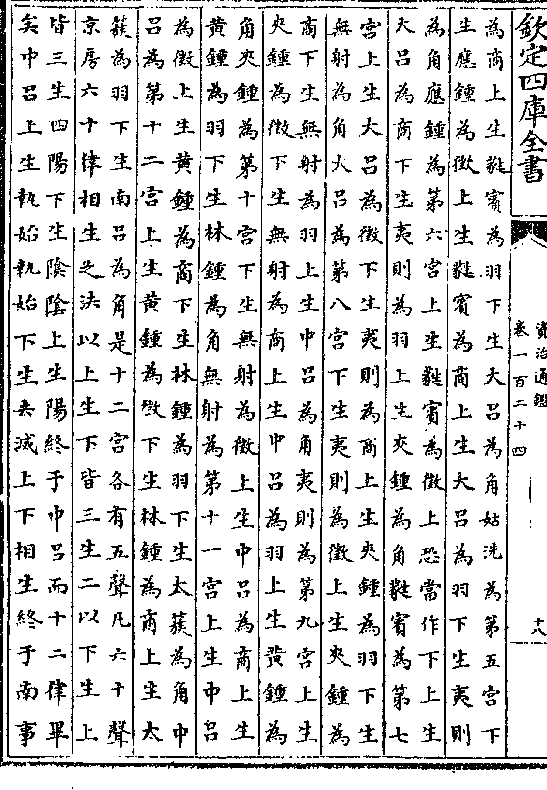 欽定四庫全書
資治通鑑
卷一百二十四
十八
為商上生蕤賓為羽下生大吕為角姑洗為第五宫下
生應鍾為徵上生蕤賓為商上生大吕為羽下生夷則
為角應鍾為第六宫上生蕤賓為徵上恐當作下上生
大吕為商下生夷則為羽上生夾鍾為角蕤賓為第七
宫上生大吕為徵下生夷則為商上生夾鍾為羽下生
無射為角大吕為第八宫下生夷則為徵上生夾鍾為
商下生無射為羽上生中吕為角夷則為第九宫上生
夾鍾為徵下生無射為商上生中吕為羽上生黄鍾為
角夾鍾為第十宫下生無射為徵上生中吕為商上生
黄鍾為羽下生林鍾為角無射為第十一宫上生中吕
為徵上生黄鍾為商下生林鍾為羽下生太蔟為角中
吕為第十二宫上生黄鍾為徵下生林鍾為商上生太
蔟為羽下生南吕為角是十二宫各有五聲凡六十聲
京房六十律相生之法以上生下皆三生二以下生上
皆三生四陽下生隂隂上生陽終于中吕而十二律畢
矣中吕上生執始執始下生去滅上下相生終于南事